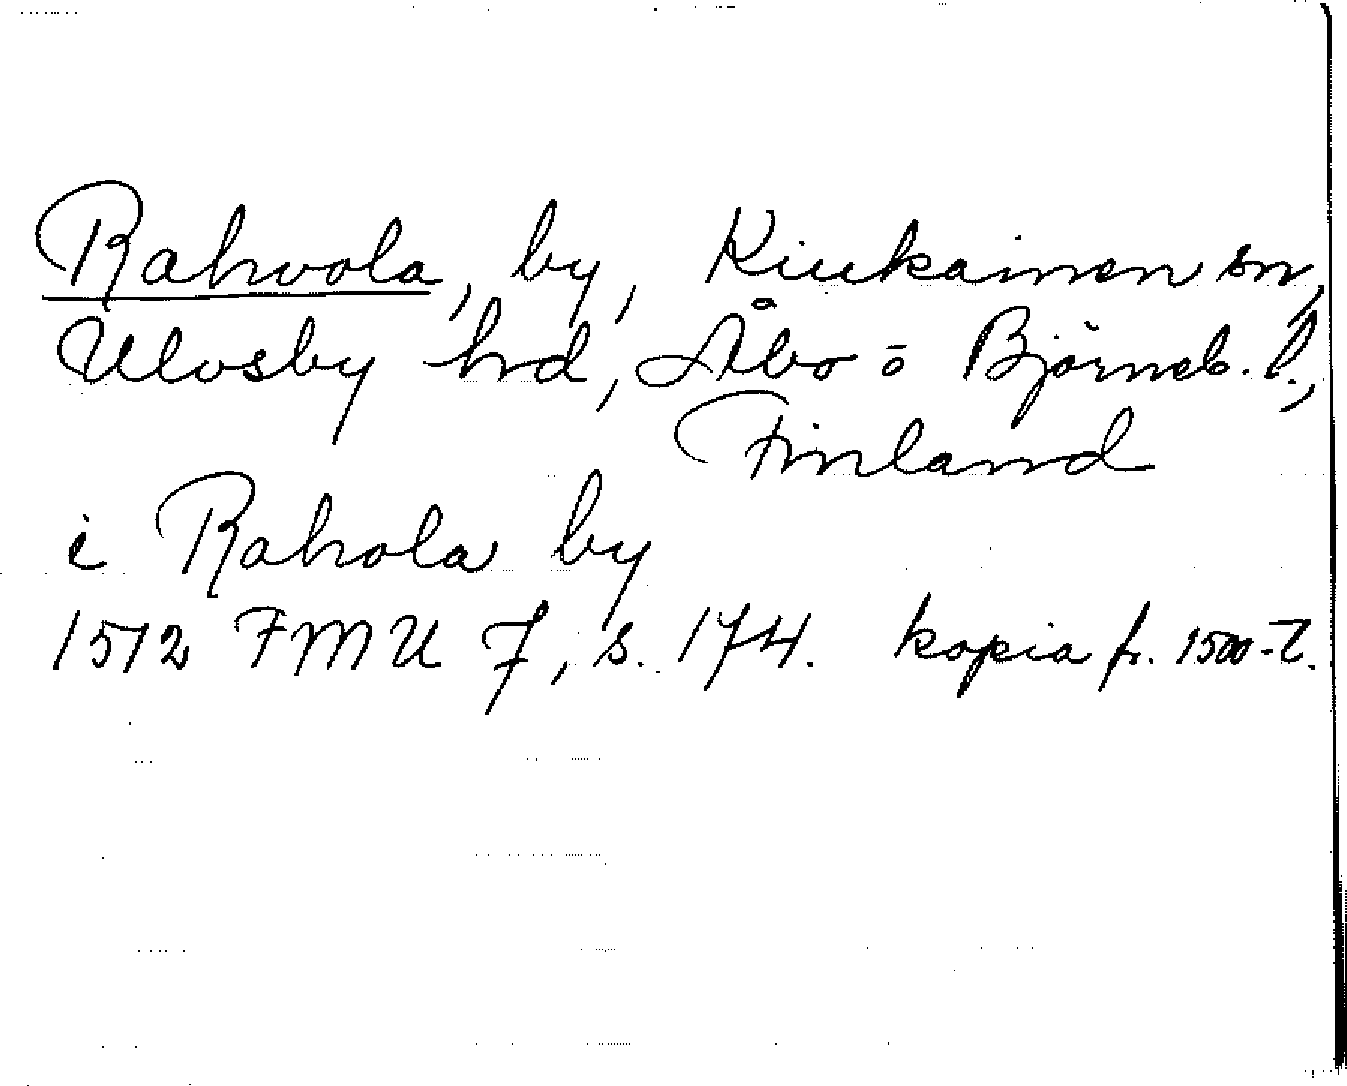 Rahvola, by, Kiukainen sn,
Ulvsby hrd, Åbo o Björneb. l.,
Finland
i Rahola by
1512 FMU 7, s. 174. kopia fr. 1500-t.